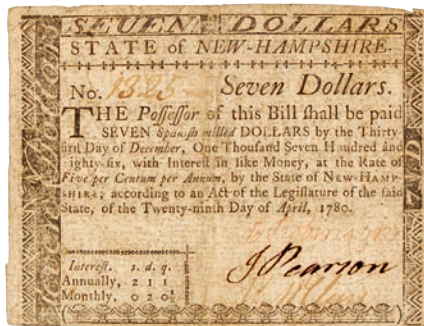 SEVEN DOLLARS
STATE of NEW-HAMPSHIRE.
No. 1325 Seven Dollars.
THE Poſſeſſor of this Bill ſhall be paid
SEVEN Spaniſh milled DOLLARS by the Thirty
firſt Day of December, One Thouſand Seven Hundred and
Eighty-ſix, with Intereſt in like Money, at the Rate of
Five per Centum per Annum, by the State of NEW-HAMP-
SHIRE, according to an Act of the Legiſlature of the ſaid
State, of the Twenty-ninth Day of April, 1780.
Intereſt. s. d. q.
Annually, 2 1 1
Monthly, 0 2 0
J Pearson